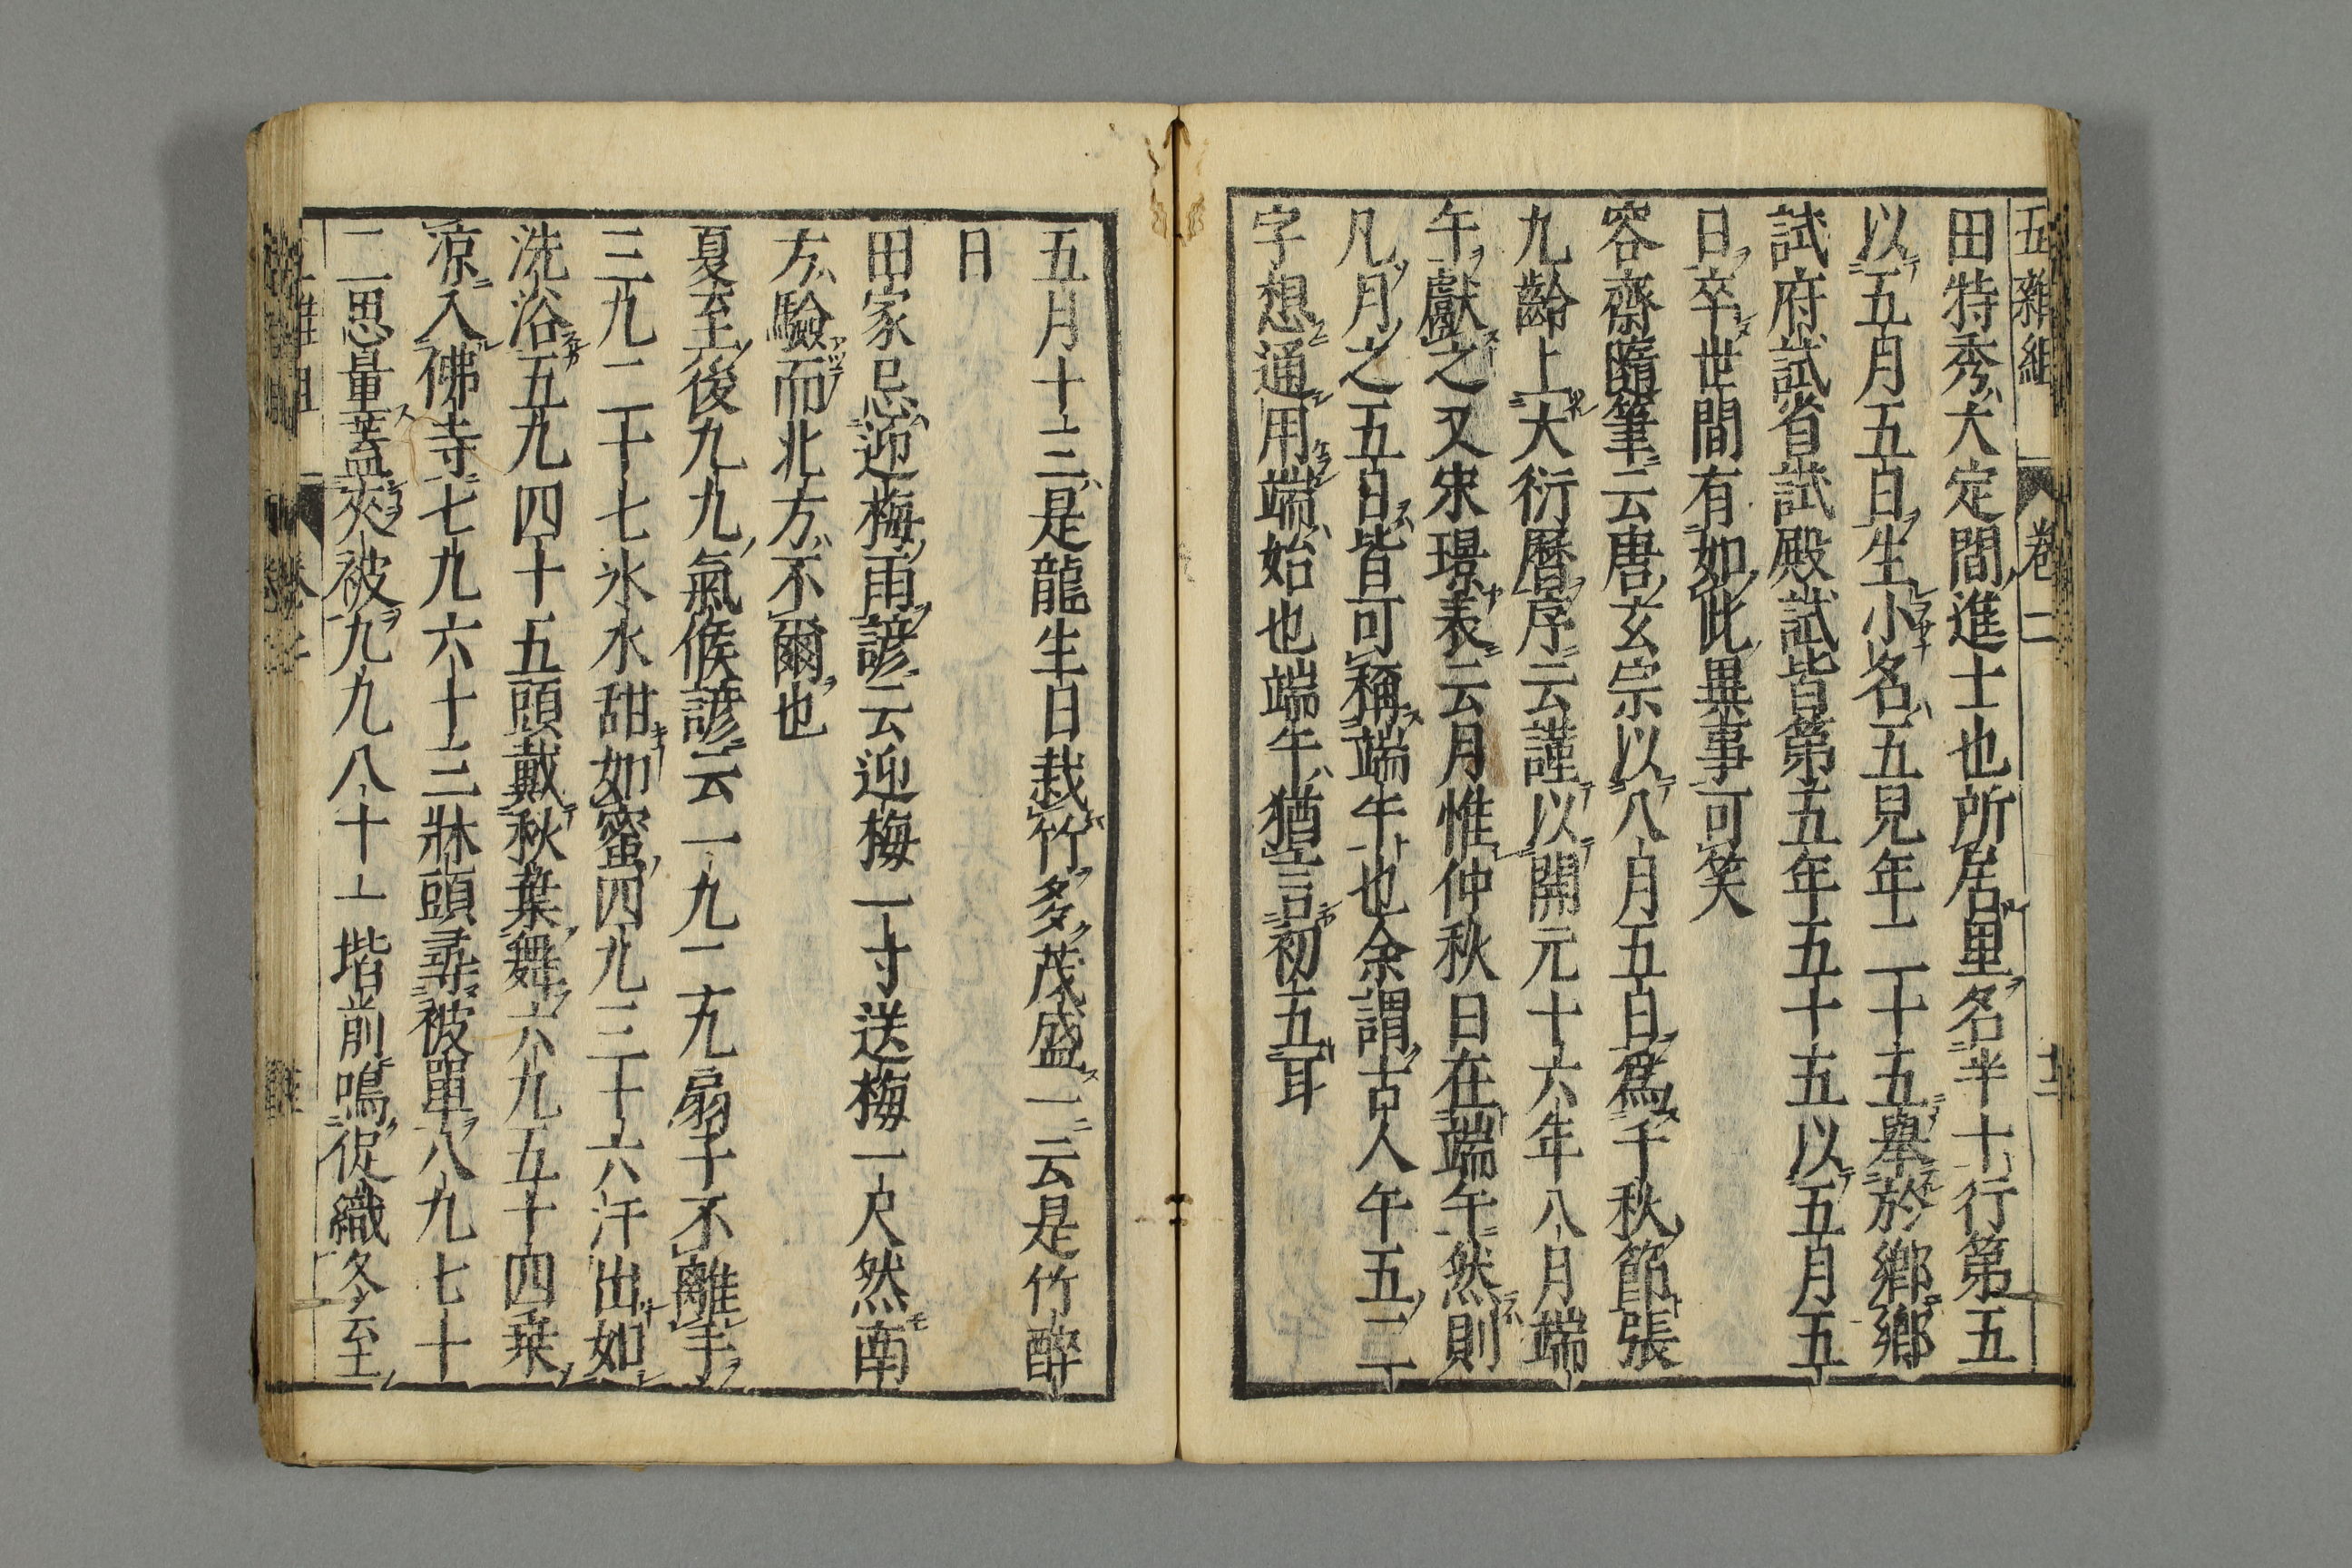 五雜組 卷二
田特秀大定間進士也所居里名半十行第五
以五月五日生小名五兒年二十五舉於鄉鄉
試府試省試殿試皆第五年五十五以五月五
日卒世間有如此異事可笑
容齋隨筆云唐玄宗以八月五日爲千秋節張
九齡上大衍曆序云謹以開元十六年八月端
午獻之又宋璟表云月惟仲秋日在端午然則
凡月之五日皆可稱端午也余謂古人午五二
字想通用端始也端午猶言初五耳
五月十三是龍生日栽竹多茂盛一云是竹醉
日
田家忌迎梅雨諺云迎梅一寸送梅一尺然南
方驗而北方不爾也
夏至後九九氣候諺云一九二九扇子不離手
三九二十七氷水甜如蜜四九三十六汗出如
洗浴五九四十五頭戴秋葉舞六九五十四乗
凉入佛寺七九六十三牀頭尋被單八九七十
二思量葢夾被九九八十一堦前鳴促織冬至